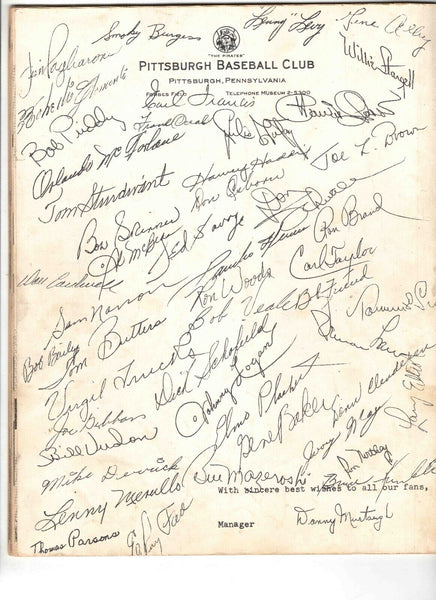 Smoky Burgess
"Lenny" Levy
Gene Alley
Willie Stargell
Jim Pagliaroni
"THE PIRATES"
PITTSBURGH BASEBALL CLUB
PITTSBURGH, PENNSYLVANIA
FORBES FIELD TELEPHONE MUSEUM 2-5300
Roberto Clemente
Earl Francis
Bob Priddy
Frank Oceak
Orlando McFarlane
Harvey Haddix
Joe L. Brown
Tom Sturdivant
Don Osborn
Bob Skinner
Ted Savage
Al McBean
Ron Brand
Don Cardwell
Carl Taylor
Ron Woods
Sam Narron
Bob Veale
Bob Friend
Bob Bailey
Tom Butters
Virgil Trucks
Dick Schofield
Johnny Logan
Joe Gibbon
Elmo Plaskett
Donn Clendenon
Bill Virdon
Gene Baker
Larry Elliot
Jerry May
Mike Derrick
Lenny Merullo
Bill Mazeroski
With sincere best wishes to all our fans,
Thomas Parsons
Manager
Danny Murtaugh